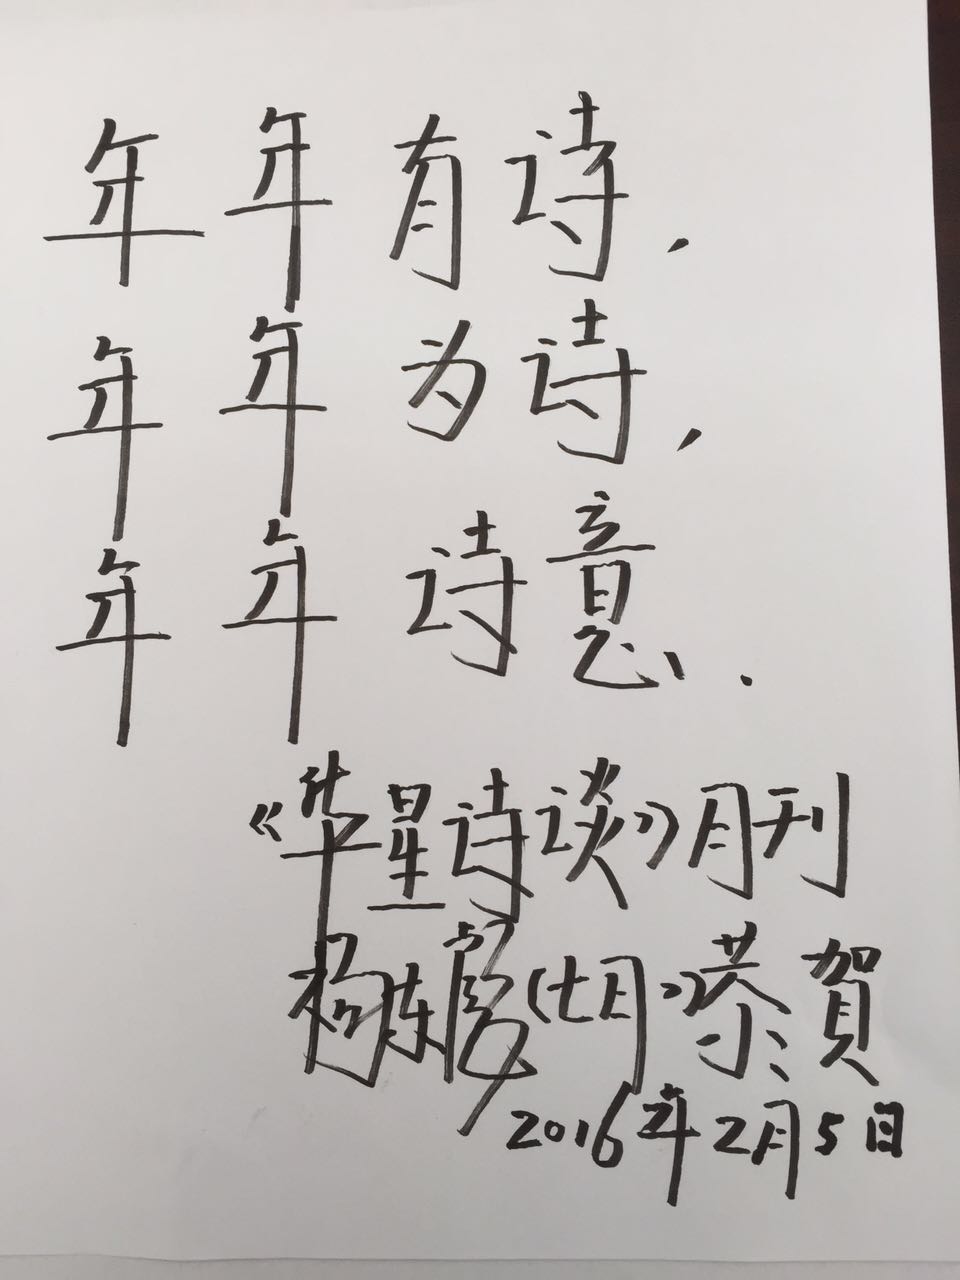 年年有诗，
年年为诗，
年年诗意．
《华星诗谈》月刊
杨东彪（七月）恭賀
2016年2月5日